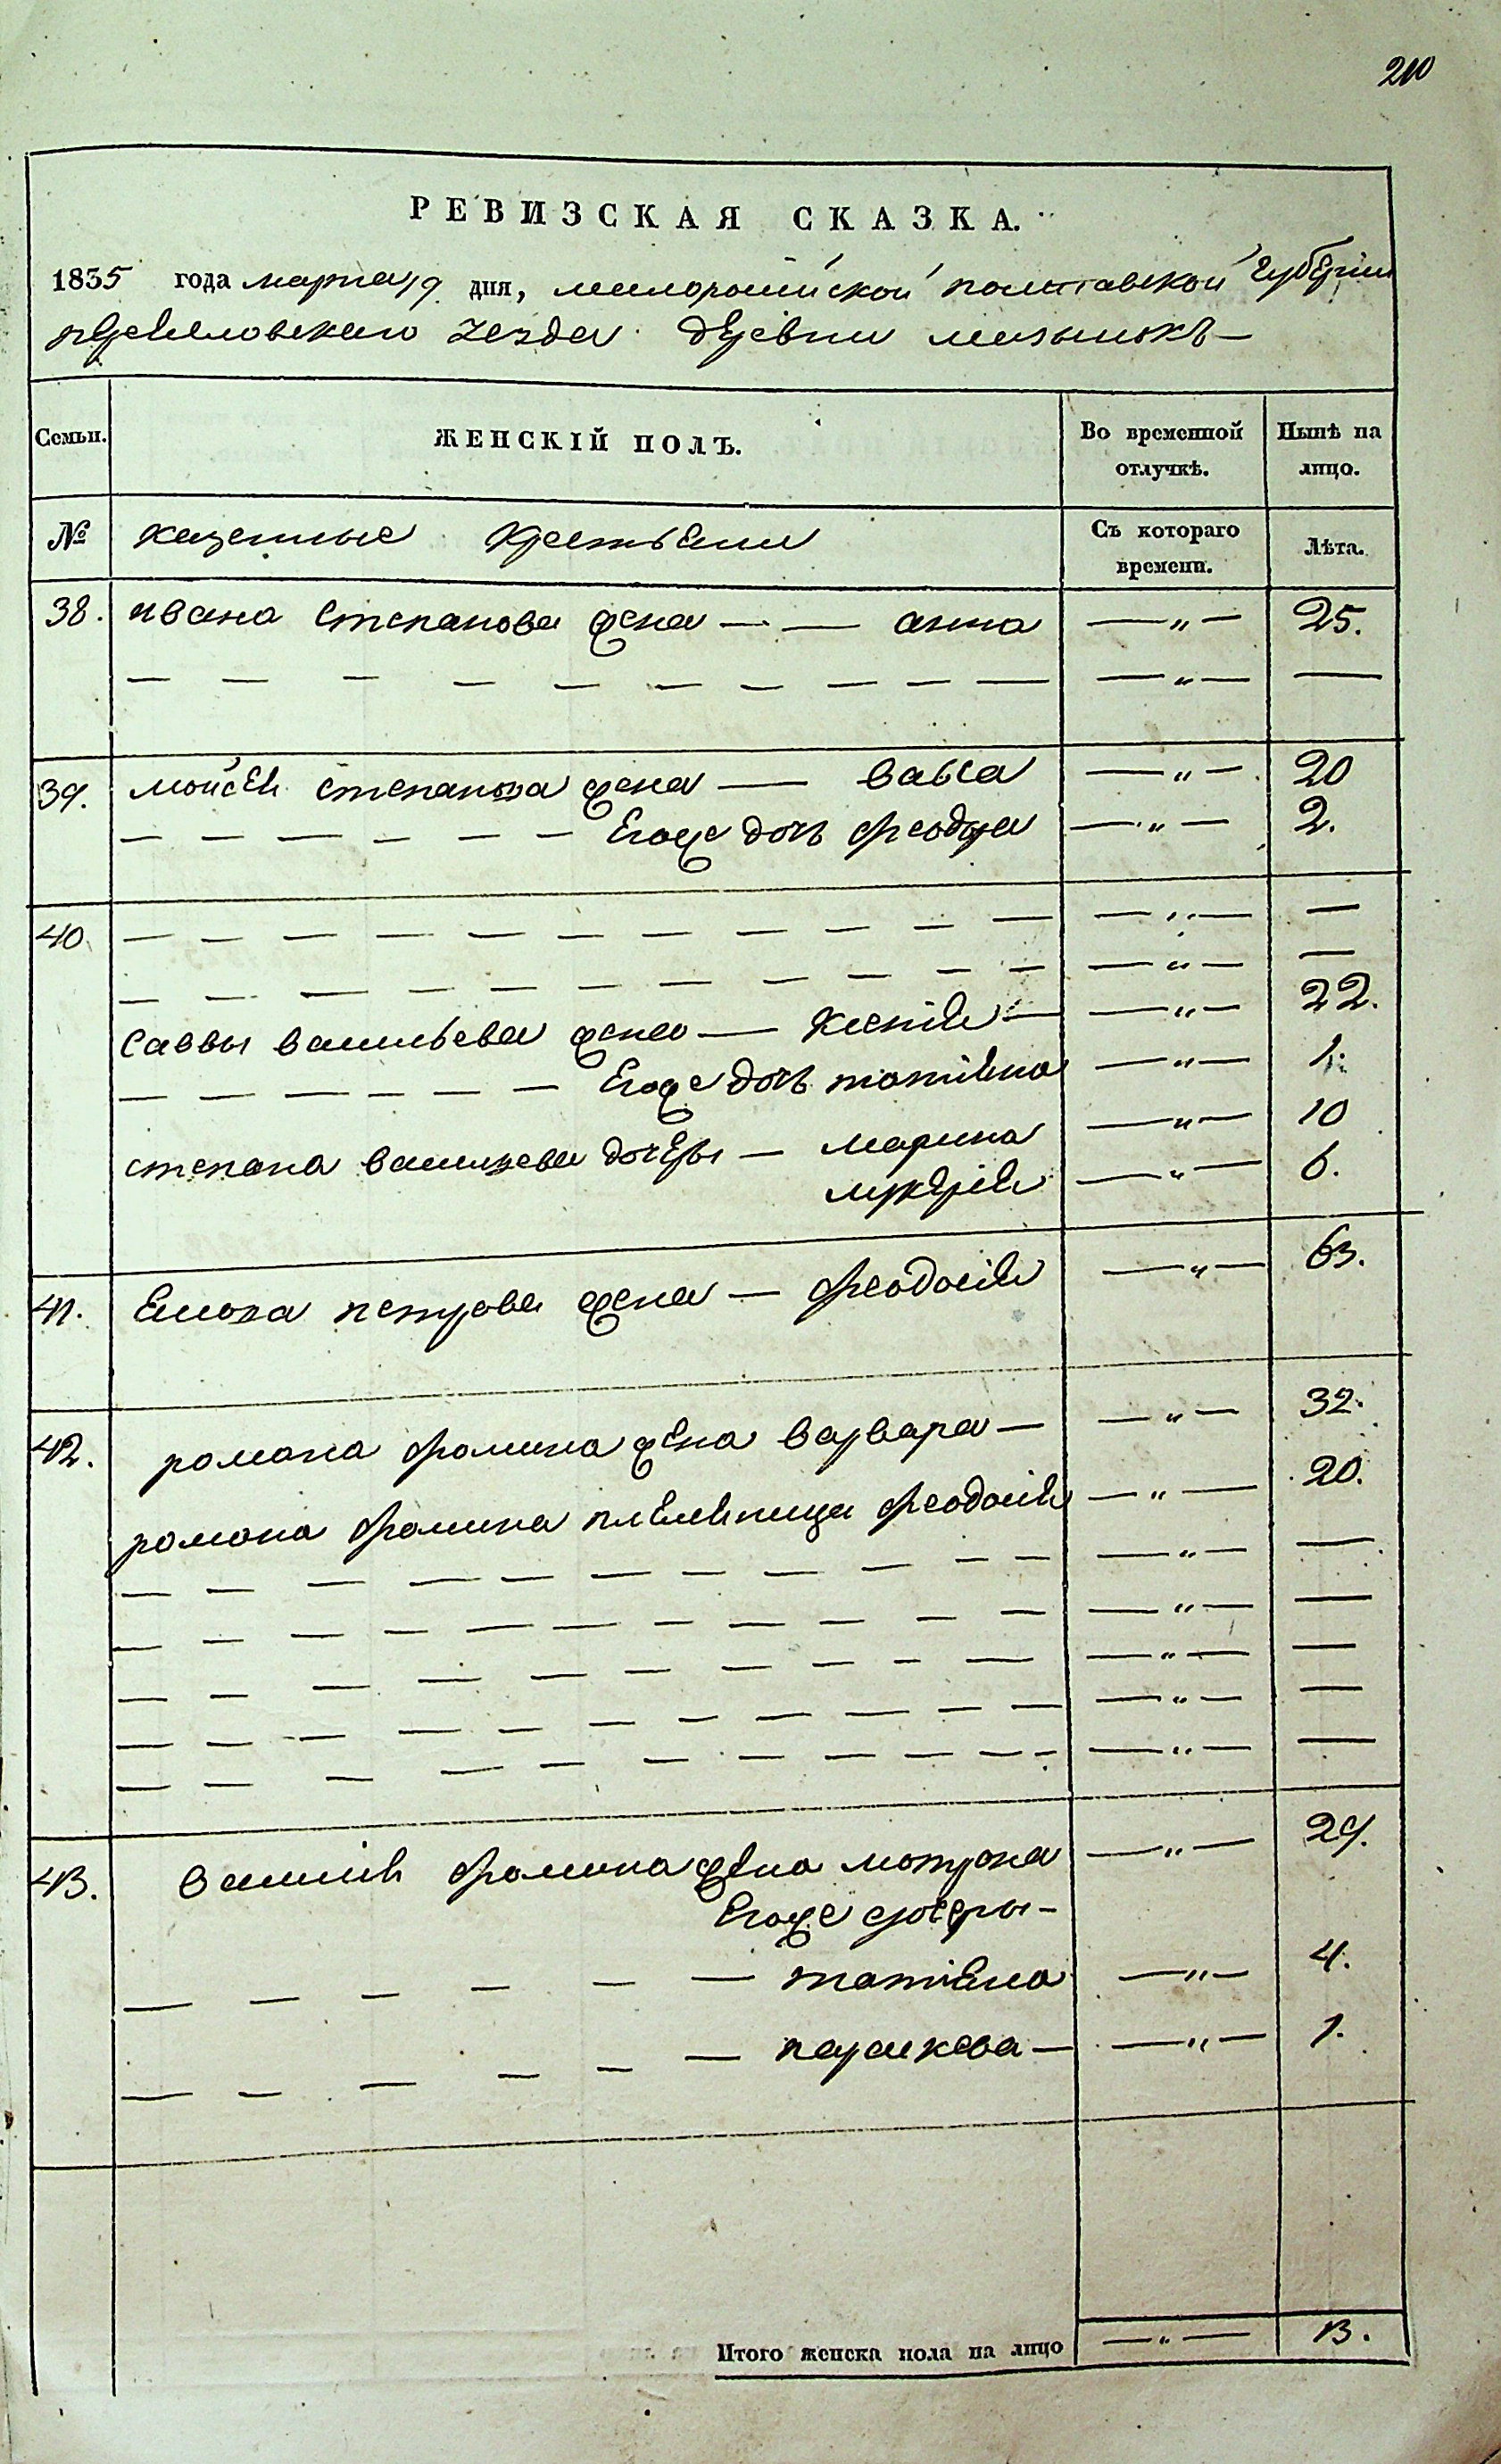 210
РЕВИЗСКАЯ СКАЗКА.
1835 года марта 19 дня, малороссийской полтавской губернии
переясловскаго уезда деревни мазынокъ —
Семьи. ЖЕНСКІЙ ПОЛЪ. Во временной отлучкѣ. Нынѣ на лицо.
№ казенные крестьяне Съ котораго времени. Лѣта.
38. ивана степанова жена — — анна — „ — 25.
— — — — — — — — — — — „ — —
39. мойсея степанова жена — васса — „ — 20
— — — — — — Егоже дочь феодора — „ — 2.
40. — — — — — — — — — — — „ — —
— — — — — — — — — — — „ — —
саввы васильева жена — ксенія — — „ — 22.
— — — — — — Егоже дочь татіяна — „ — 1.
степана васильева дочеры — марина — „ — 10
лукерія — „ — 6.
41. петрова жена — феодосія — „ — 63.
42. романа фомина жена варвара — — „ — 32.
романа фомина племяница феодосія — „ — 20.
— — — — — — — — — — — „ — —
— — — — — — — — — — — „ — —
— — — — — — — — — — — „ — —
— — — — — — — — — — — „ — —
— — — — — — — — — — — „ — —
43. василія фомина жена мотрона — „ — 29.
Егоже дочеры —
— — — — — — татіяна — „ — 4.
— — — — — — параскева — — „ — 1.
Итого женска пола на лицо — „ — 13.